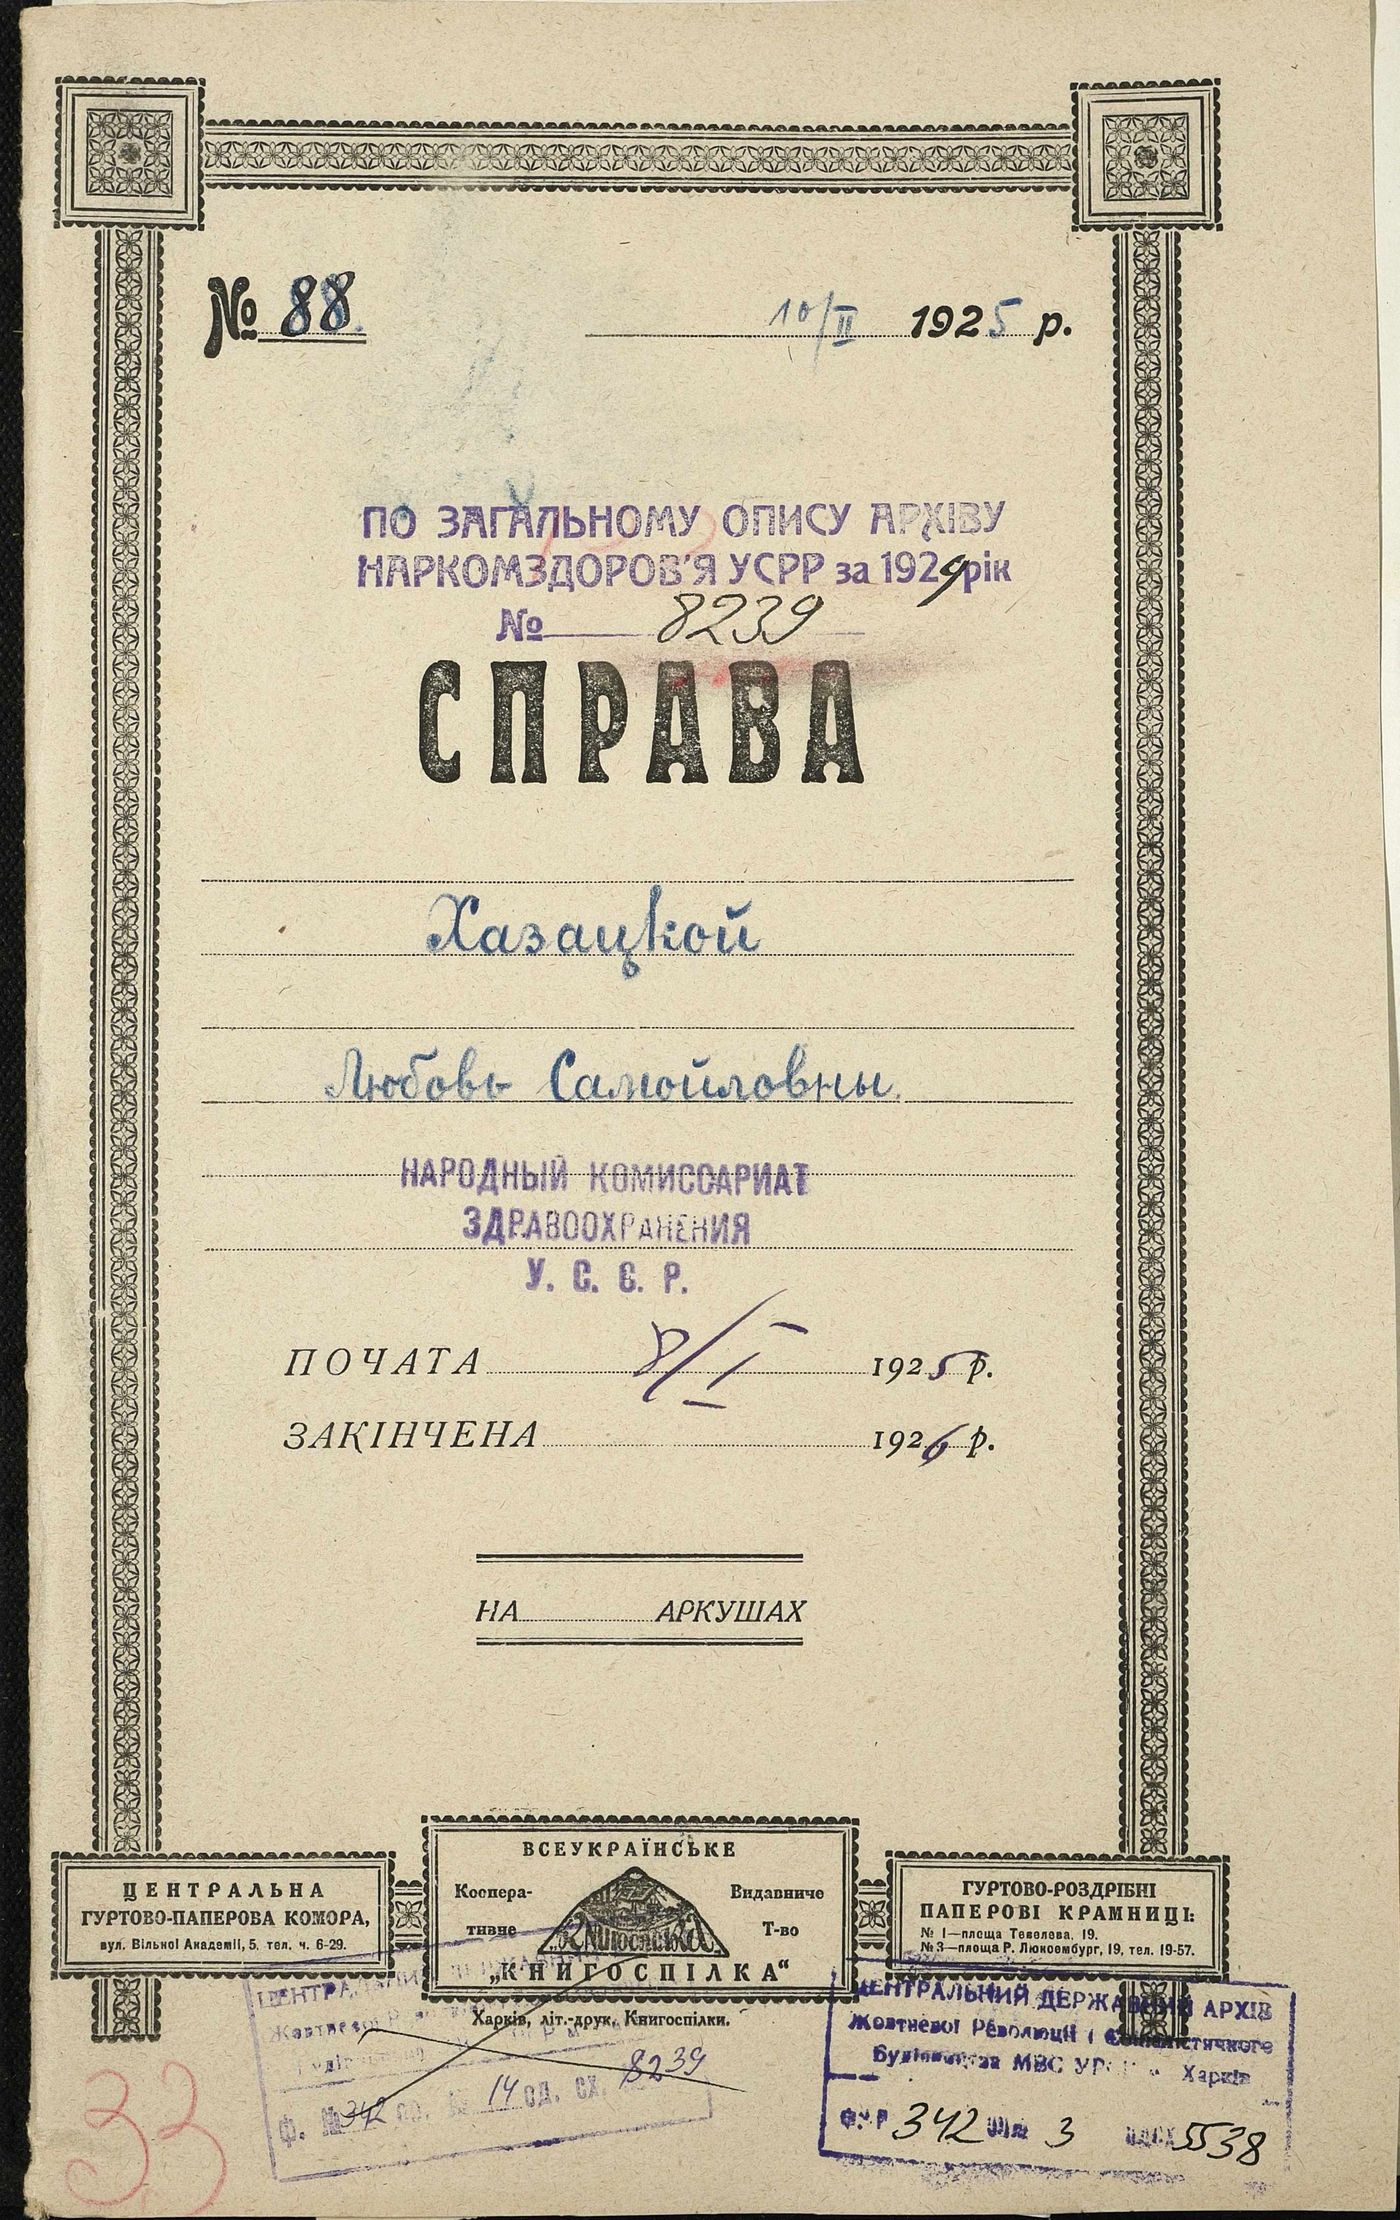 № 88
10/II 1925 р.
ПО ЗАГАЛЬНОМУ ОПИСУ АРХІВУ
НАРКОМЗДОРОВ'Я УСРР за 1929 рік
№ 8239
СПРАВА
Хазацкой
Любовь Самойловны.
НАРОДНЫЙ КОМИССАРИАТ
ЗДРАВООХРАНЕНИЯ
У. С. С. Р.
ПОЧАТА 8/I 1925 р.
ЗАКІНЧЕНА 1926 р.
НА АРКУШАХ
ЦЕНТРАЛЬНА
ГУРТОВО-ПАПЕРОВА КОМОРА,
вул. Вільної Академії, 5. тел. ч. 6-29.
ВСЕУКРАЇНСЬКЕ
Коопера- Видавниче
тивне Т-во
Книгоспілка
„КНИГОСПІЛКА“
Харків, літ.-друк. Книгоспілки.
ГУРТОВО-РОЗДРІБНІ
ПАПЕРОВІ КРАМНИЦІ:
№ 1—площа Тевелева, 19.
№ 3—площа Р. Люксембург, 19, тел. 19-57.
Ф. № 342 оп. № 14 од. сх. 8239
ЦЕНТРАЛЬНИЙ ДЕРЖАВНИЙ АРХІВ
Жовтневої Революції і Соціалістичного
Будівництва МВС Харків
342 3 5538
33